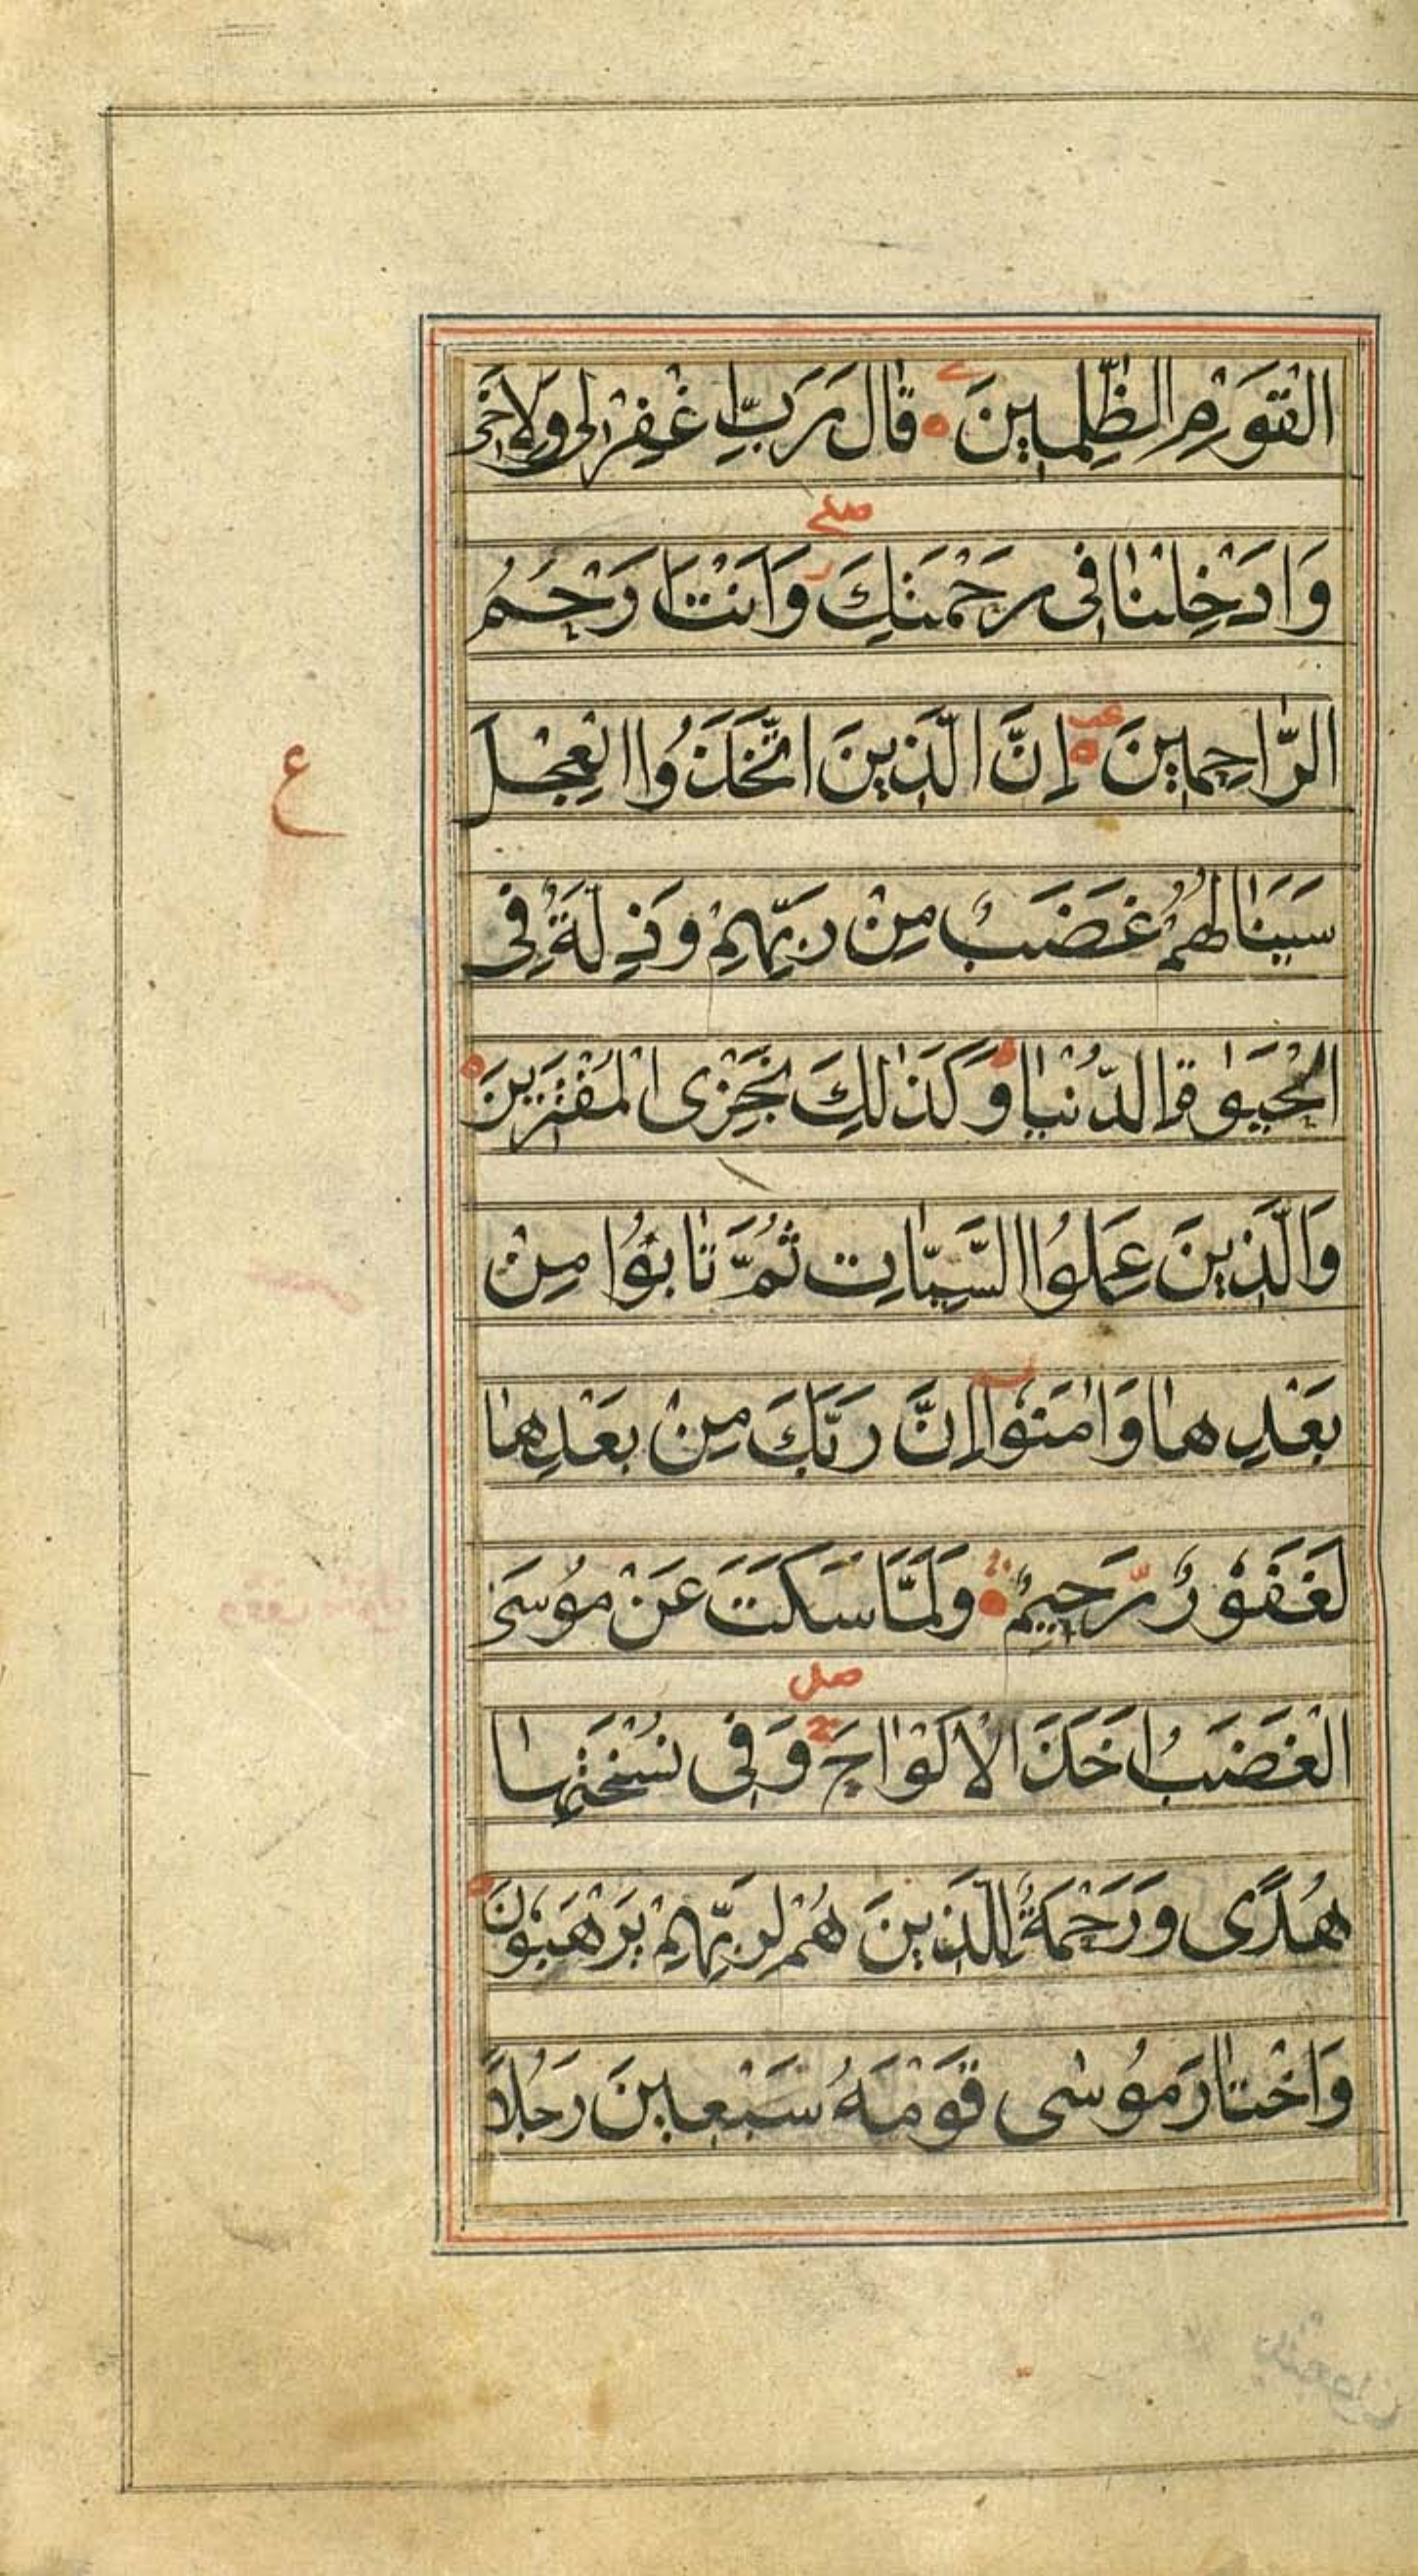 الْقَوْمِ الظّٰلِمِينَ ۝ قَالَ رَبِّ اغْفِرْ لِى وَلِاَخِى
صلے
وَاَدْخِلْنَا فِى رَحْمَتِكَ وَاَنْتَ اَرْحَمُ
الرَّاحِمِينَ ۝ اِنَّ الَّذِينَ اتَّخَذُوا الْعِجْلَ
ع
سَيَنَالُهُمْ غَضَبٌ مِنْ رَبِّهِمْ وَذِلَّةٌ فِى
الْحَيٰوةِ الدُّنْيَا وَكَذٰلِكَ نَجْزِى الْمُفْتَرِينَ ۝
وَالَّذِينَ عَمِلُوا السَّيِّاٰتِ ثُمَّ تَابُوا مِنْ
بَعْدِهَا وَاٰمَنُوا اِنَّ رَبَّكَ مِنْ بَعْدِهَا
لَغَفُورٌ رَّحِيمٌ ۝ وَلَمَّا سَكَتَ عَنْ مُوسَى
صلى
الْغَضَبُ اَخَذَ الْاَلْوَاحَ وَفِى نُسْخَتِهَا
هُدًى وَرَحْمَةٌ لِلَّذِينَ هُمْ لِرَبِّهِمْ يَرْهَبُونَ ۝
وَاخْتَارَ مُوسٰى قَوْمَهُ سَبْعِينَ رَجُلًا